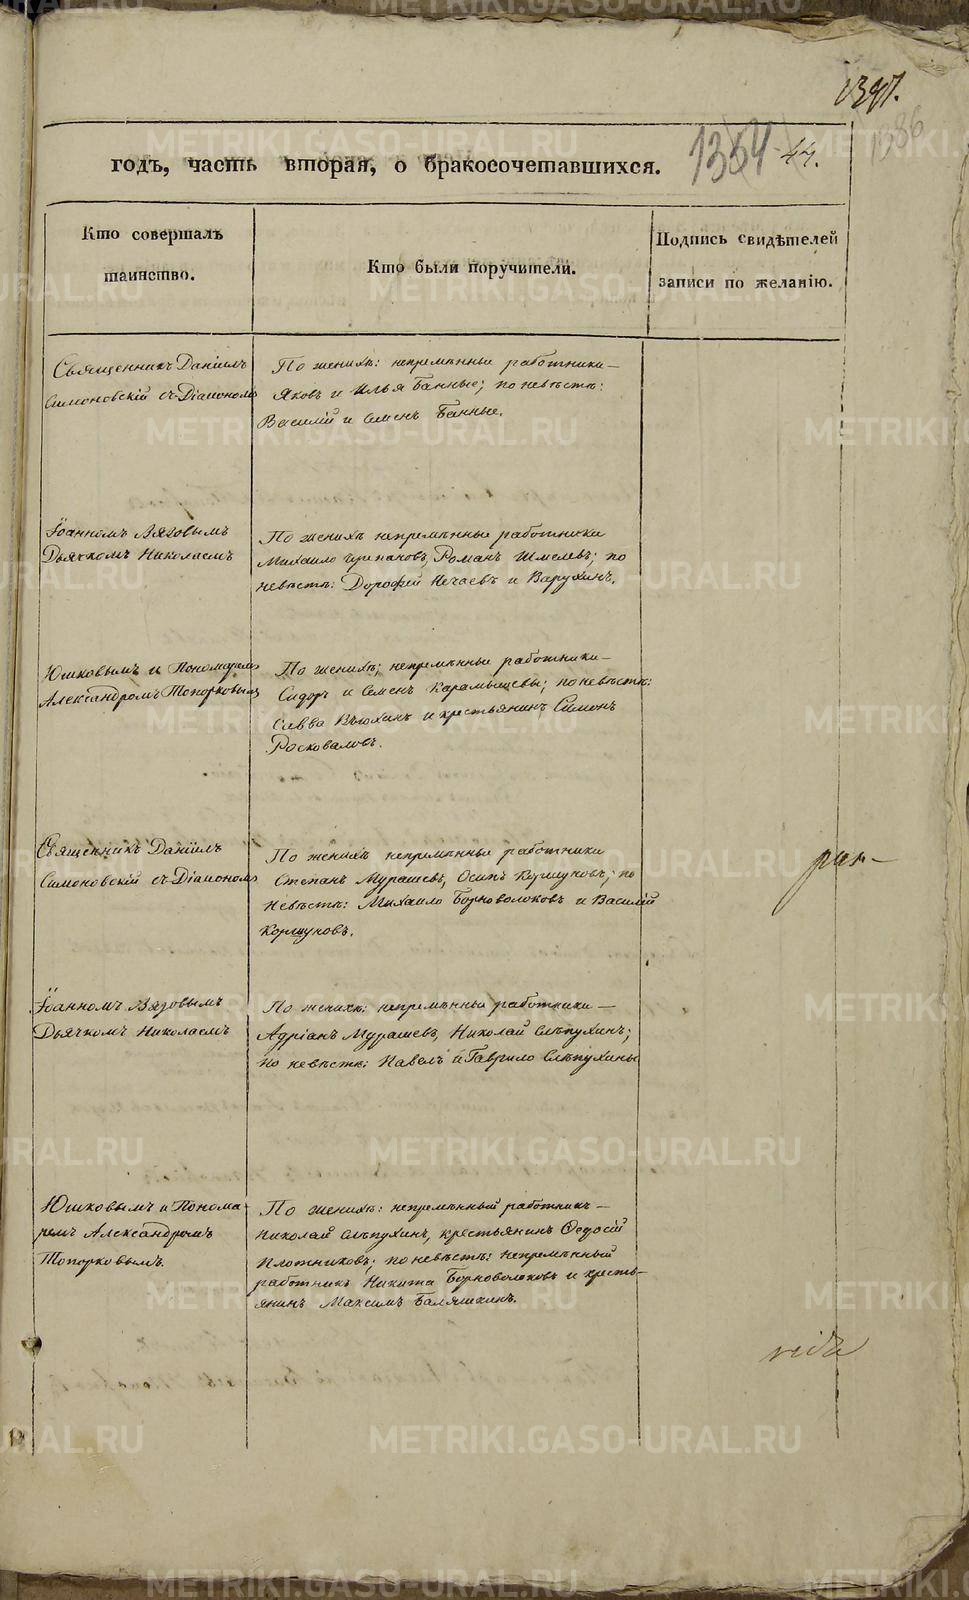 1397.
1386
1354 44.
годъ, часть вторая, о бракосочетавшихся.
Кто совершалъ
таинство.
Кто были поручители.
Подпись свидѣтелей
записи по желанію.
Священникъ Даніилъ
Симоновскій съ Діакономъ
По женихѣ: непремѣнные работники —
Яковъ и Илья Банные; по невѣстѣ:
Василій и Семенъ Банные.
Іоанномъ Вязовымъ
Дьячкомъ Николаемъ
По женихѣ непремѣнные работники
Михайло Черепановъ, Романъ Шмелевъ; по
невѣстѣ: Дорофей Нечаевъ и Варухинъ.
Юшковымъ и Пономаремъ
Александромъ Топорковымъ
По женихѣ; непремѣнные работники —
Сидоръ и Семенъ Карамышевы; по невѣстѣ:
Савва Вьюхинъ и крестьянинъ Симонъ
Росковаловъ.
Священникъ Даніилъ
Симоновскій съ Діакономъ
По женихѣ непремѣнные работники
Степанъ Мурашевъ, Осипъ Коршуновъ; по
невѣстѣ: Михайло Борноволоковъ и Василій
Коршуновъ.
Іоанномъ Вязовымъ
Дьячкомъ Николаемъ
По женихѣ: непремѣнные работники —
Адріанъ Мурашевъ, Николай Слѣпухинъ;
по невѣстѣ: Павелъ и Гаврило Слѣпухины
Юшковымъ и Понома-
ремъ Александромъ
Топорковымъ.
По женихѣ: непремѣнный работникъ —
Николай Слѣпухинъ, крестьянинъ Ѳедосій
Плотниковъ; по невѣстѣ: непремѣнный
работникъ Никита Борноволоковъ и кресть-
янинъ Максимъ Баляшкинъ.